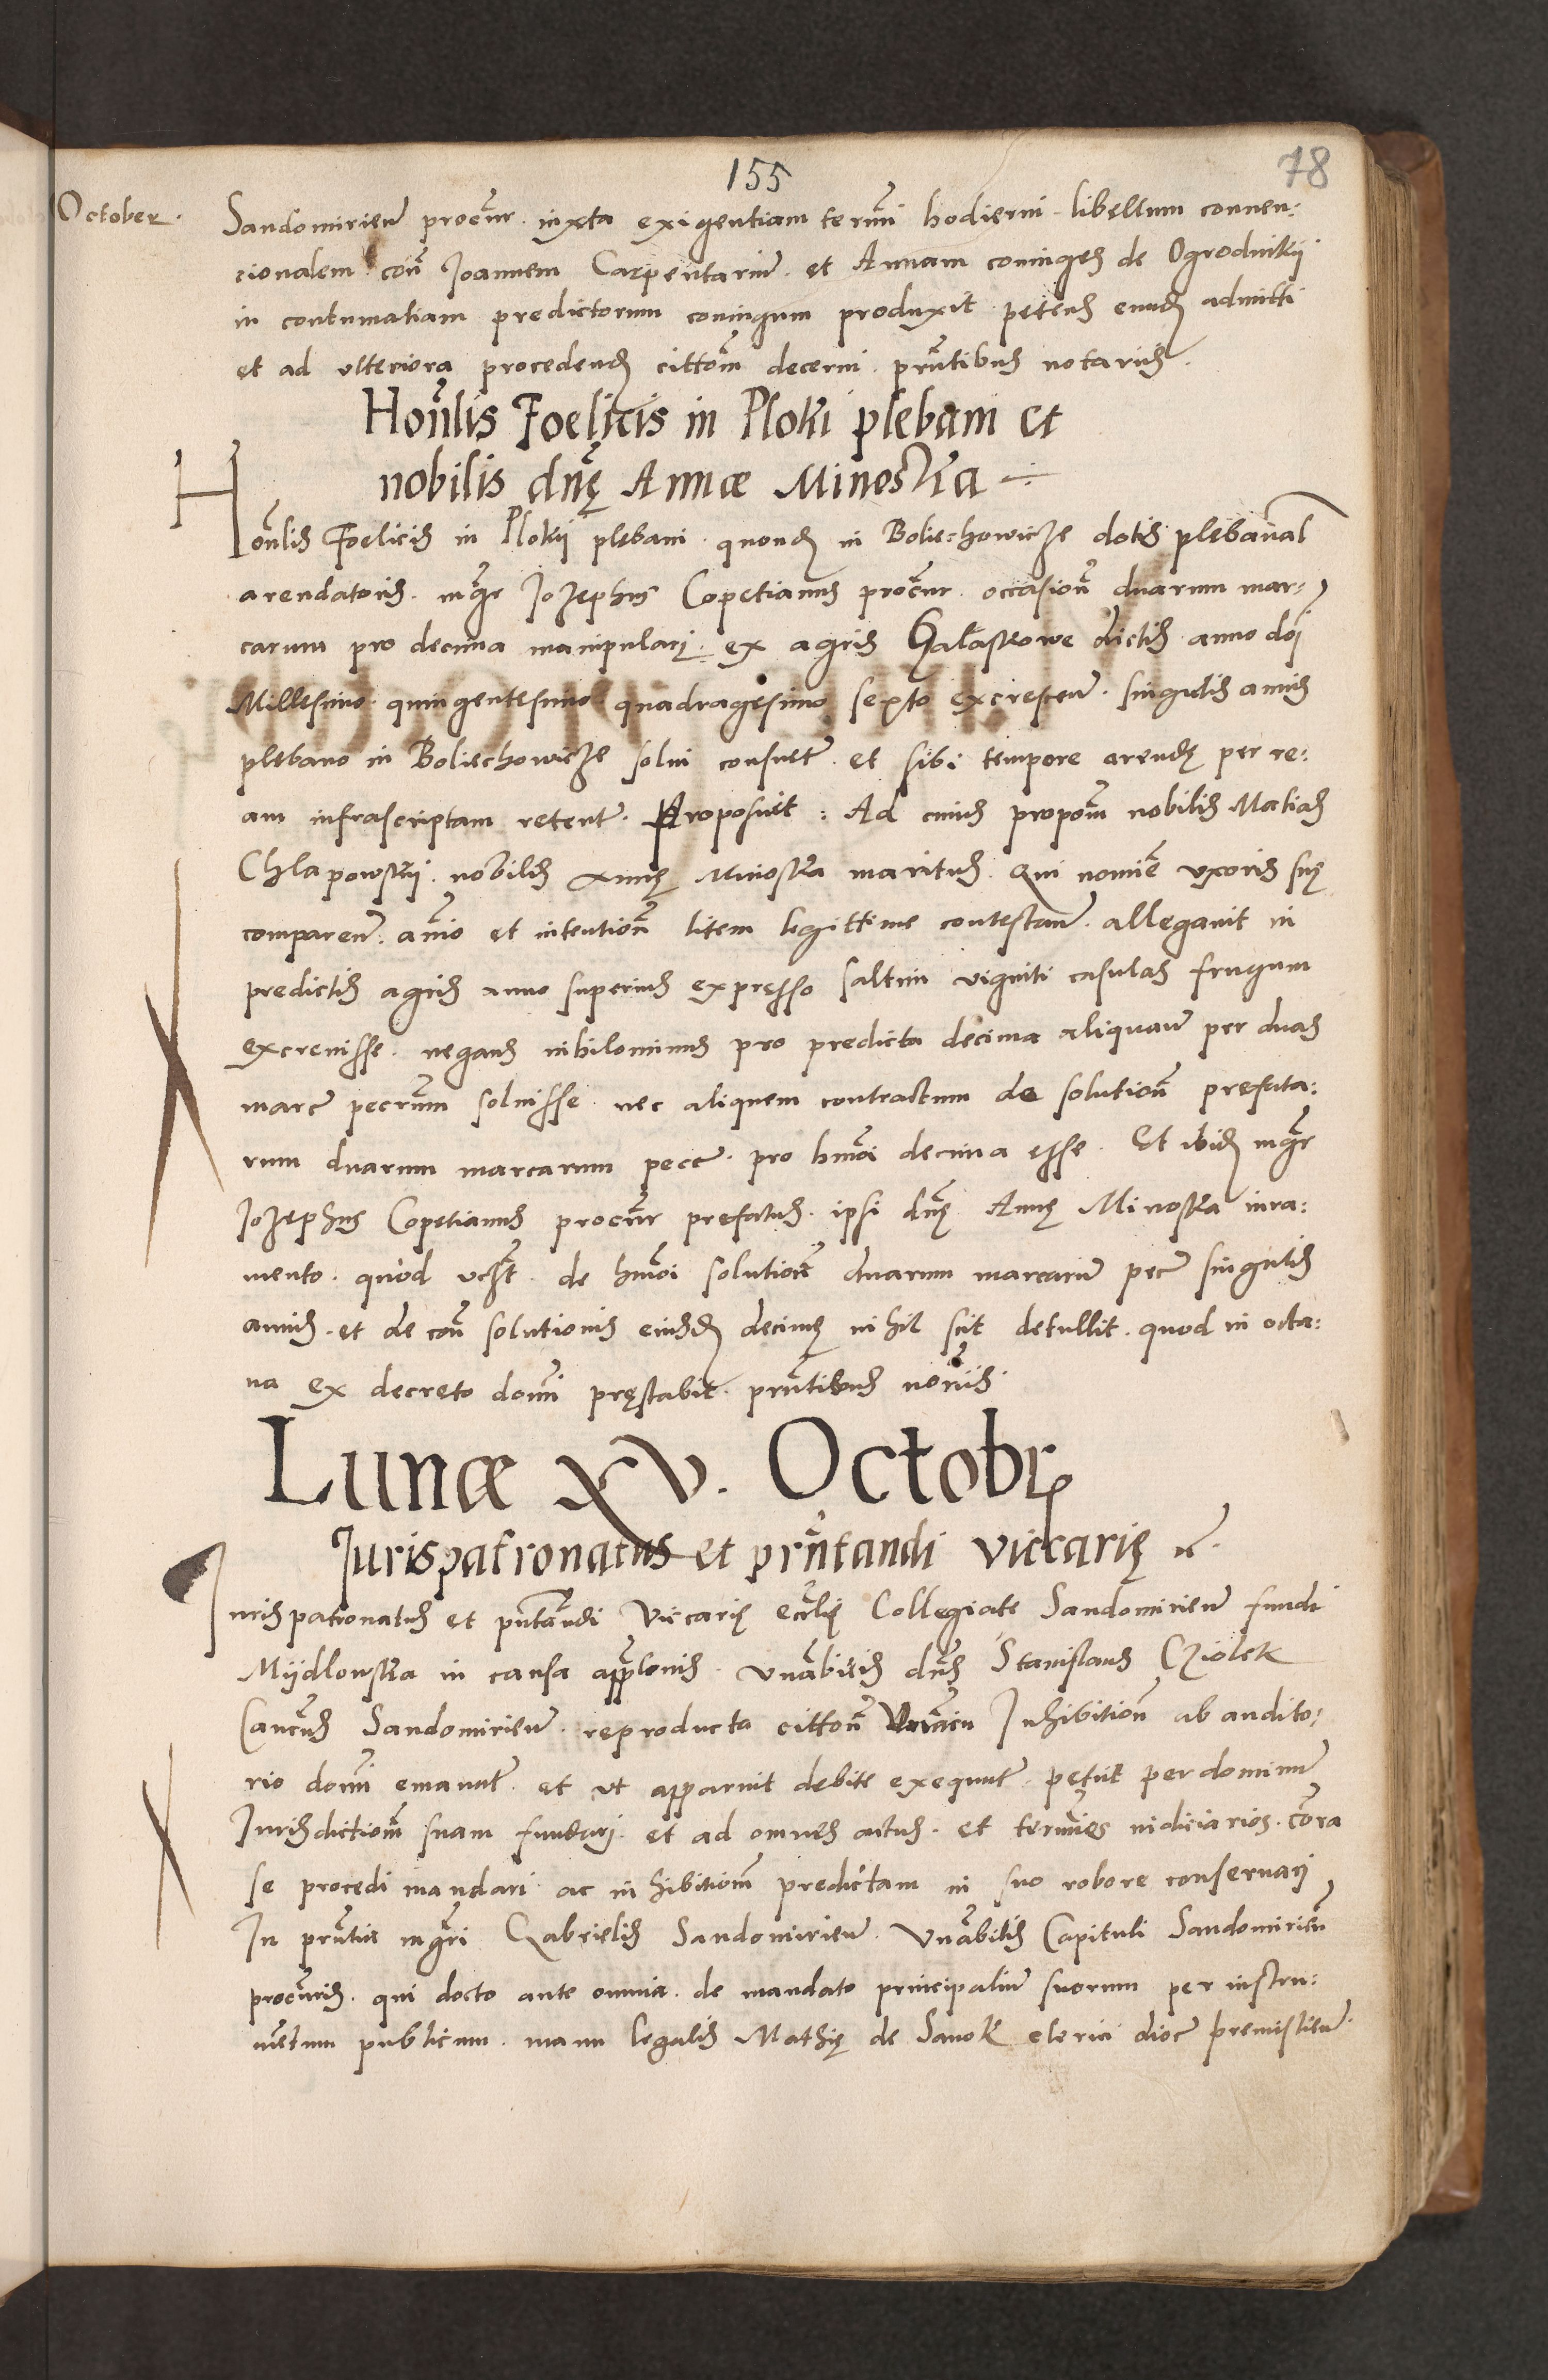 155
78
October.
Sandomirien̄ procūr. iuxta exigentiam termīni hodierni libellum conven:
cionalem con̄ Joannem Carpentariū. et Annam coniuges de Ogrodnikij
in contumatiam predictorum coniugum produxit petens eund̄ admitti
et ad vlteriora procedend̄ cittōm decerni. pn̄tibus notarijs.
Hon̄lis Foelicis in Ploki plebani et
nobilis dn̄ę Annæ Minoska ÷
Hon̄lis Foelicis in Plokij plebani. quond̄ in Boliechowicze dotis plebanal̄
arendatoris. mgr̄ Jozephus Copetianus procūr. occasion̄ duarum mar:
carum pro decima manipulari. ex agris Halastrowe dictis anno dn̄i
Millesimo quingentesimo quadragesimo sexto excrescen̄. singulis annis
plebano in Boliechowicze solui consuet̄. et sibi tempore arendę per re:
am infrascriptam retent̄. Proposuit: Ad cuius propōm nobilis Matias
Chlapowskij. nobilis Annę Minoska maritus. Qui nomīe vxoris suę
comparen̄. animo et intention̄ litem legittime contestan̄. allegauit in
predictis agris anno superius expresso saltim viginti casulas frugum
excreuisse. negans nihilominus pro predicta decima aliquam̄ per duas
marc̄ pecun̄m soluisse. nec aliquem contractum de solution̄ prefata:
rum duarum marcarum pecc̄. pro hmōi decima esse. Et ibid̄ mgr̄
Jozephus Copetianus procūr prefatus. ipsi dn̄ę Annę Minoska iura:
mento. quod vczt̄. de hmōi solution̄ duarum marcarū pec̄ singulis
annis. et de con̄ solutionis eiusd̄ decimę nihil scit detullit. quod in octa:
ua ex decreto domī pręstabit. pn̄tibus notrijs.
Lunæ XV. Octobrꝭ
Jurispatronatus et pn̄tandi viccarię n̄.
Jurispatronatus et pn̄tandi Viccarię eccl̄ię Collegiate Sandomirien̄ fundi
Mijdlowska in causa appl̄onis. Vn̄abilis dn̄s Stanislaus Cziolek
Can̄cus Sandomirien̄. reproducta cittōn̄ Inhibition̄ ab audito:
rio domī emanat̄. et vt apparuit debite exequut̄. petijt per dominū
Jurisdictiōm suam fundari. et ad omnes actus. et termīos iudiciarios. cōra
se procedi mandari ac inhibitiōm predictam in suo robore conseruari
In pn̄tia mgr̄i Gabrielis Sandomirien̄. Vn̄abilis Capituli Sandomirien̄
procūris. qui docto ante omnia. de mandato principaliū suorum per instru:
mentum publicum. manu legalis Mathię de Sanok clerici dioc̄ premislien̄.